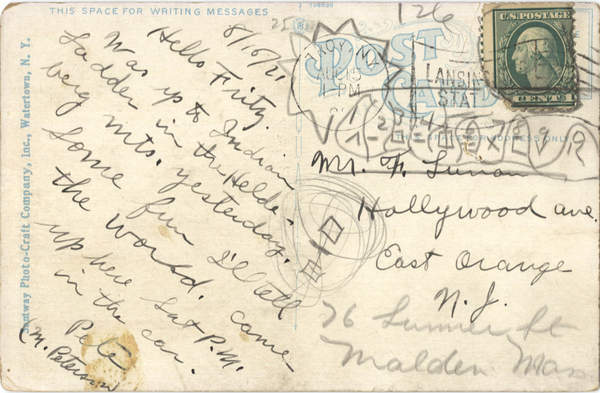 THIS SPACE FOR WRITING MESSAGES
Santway Photo-Craft Company, Inc., Watertown, N. Y.
8/16/21
Hello Fritz.
Was up to Indian
Ladder in the Helder-
berg mts. yesterday.
Some fun I'll tell
the world. Came
up here Sat P.M.
in the car.
Pete
(M. Peterson
25
126
POST
CARD
TROY, N.Y.
AUG 15
PM
LANSING
STAT
U.S. POSTAGE
1 CENT 1
FOR ADDRESS ONLY
Mr. F.
Hollywood ave.
East Orange
N. J.
76 Sumner St
Malden Mass